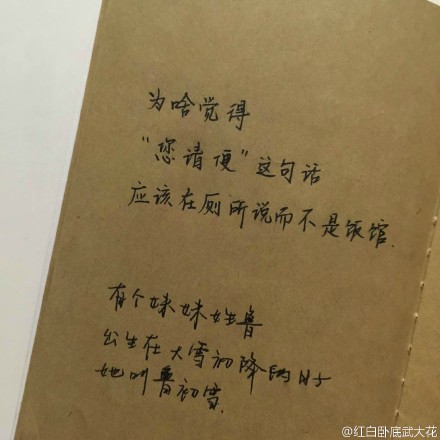 为啥觉得
“您请便”这句话
应该在厕所说而不是饭馆.
有个妹妹姓鲁
出生在大雪初降的时
她叫鲁初雪.
@红白卧底武大花